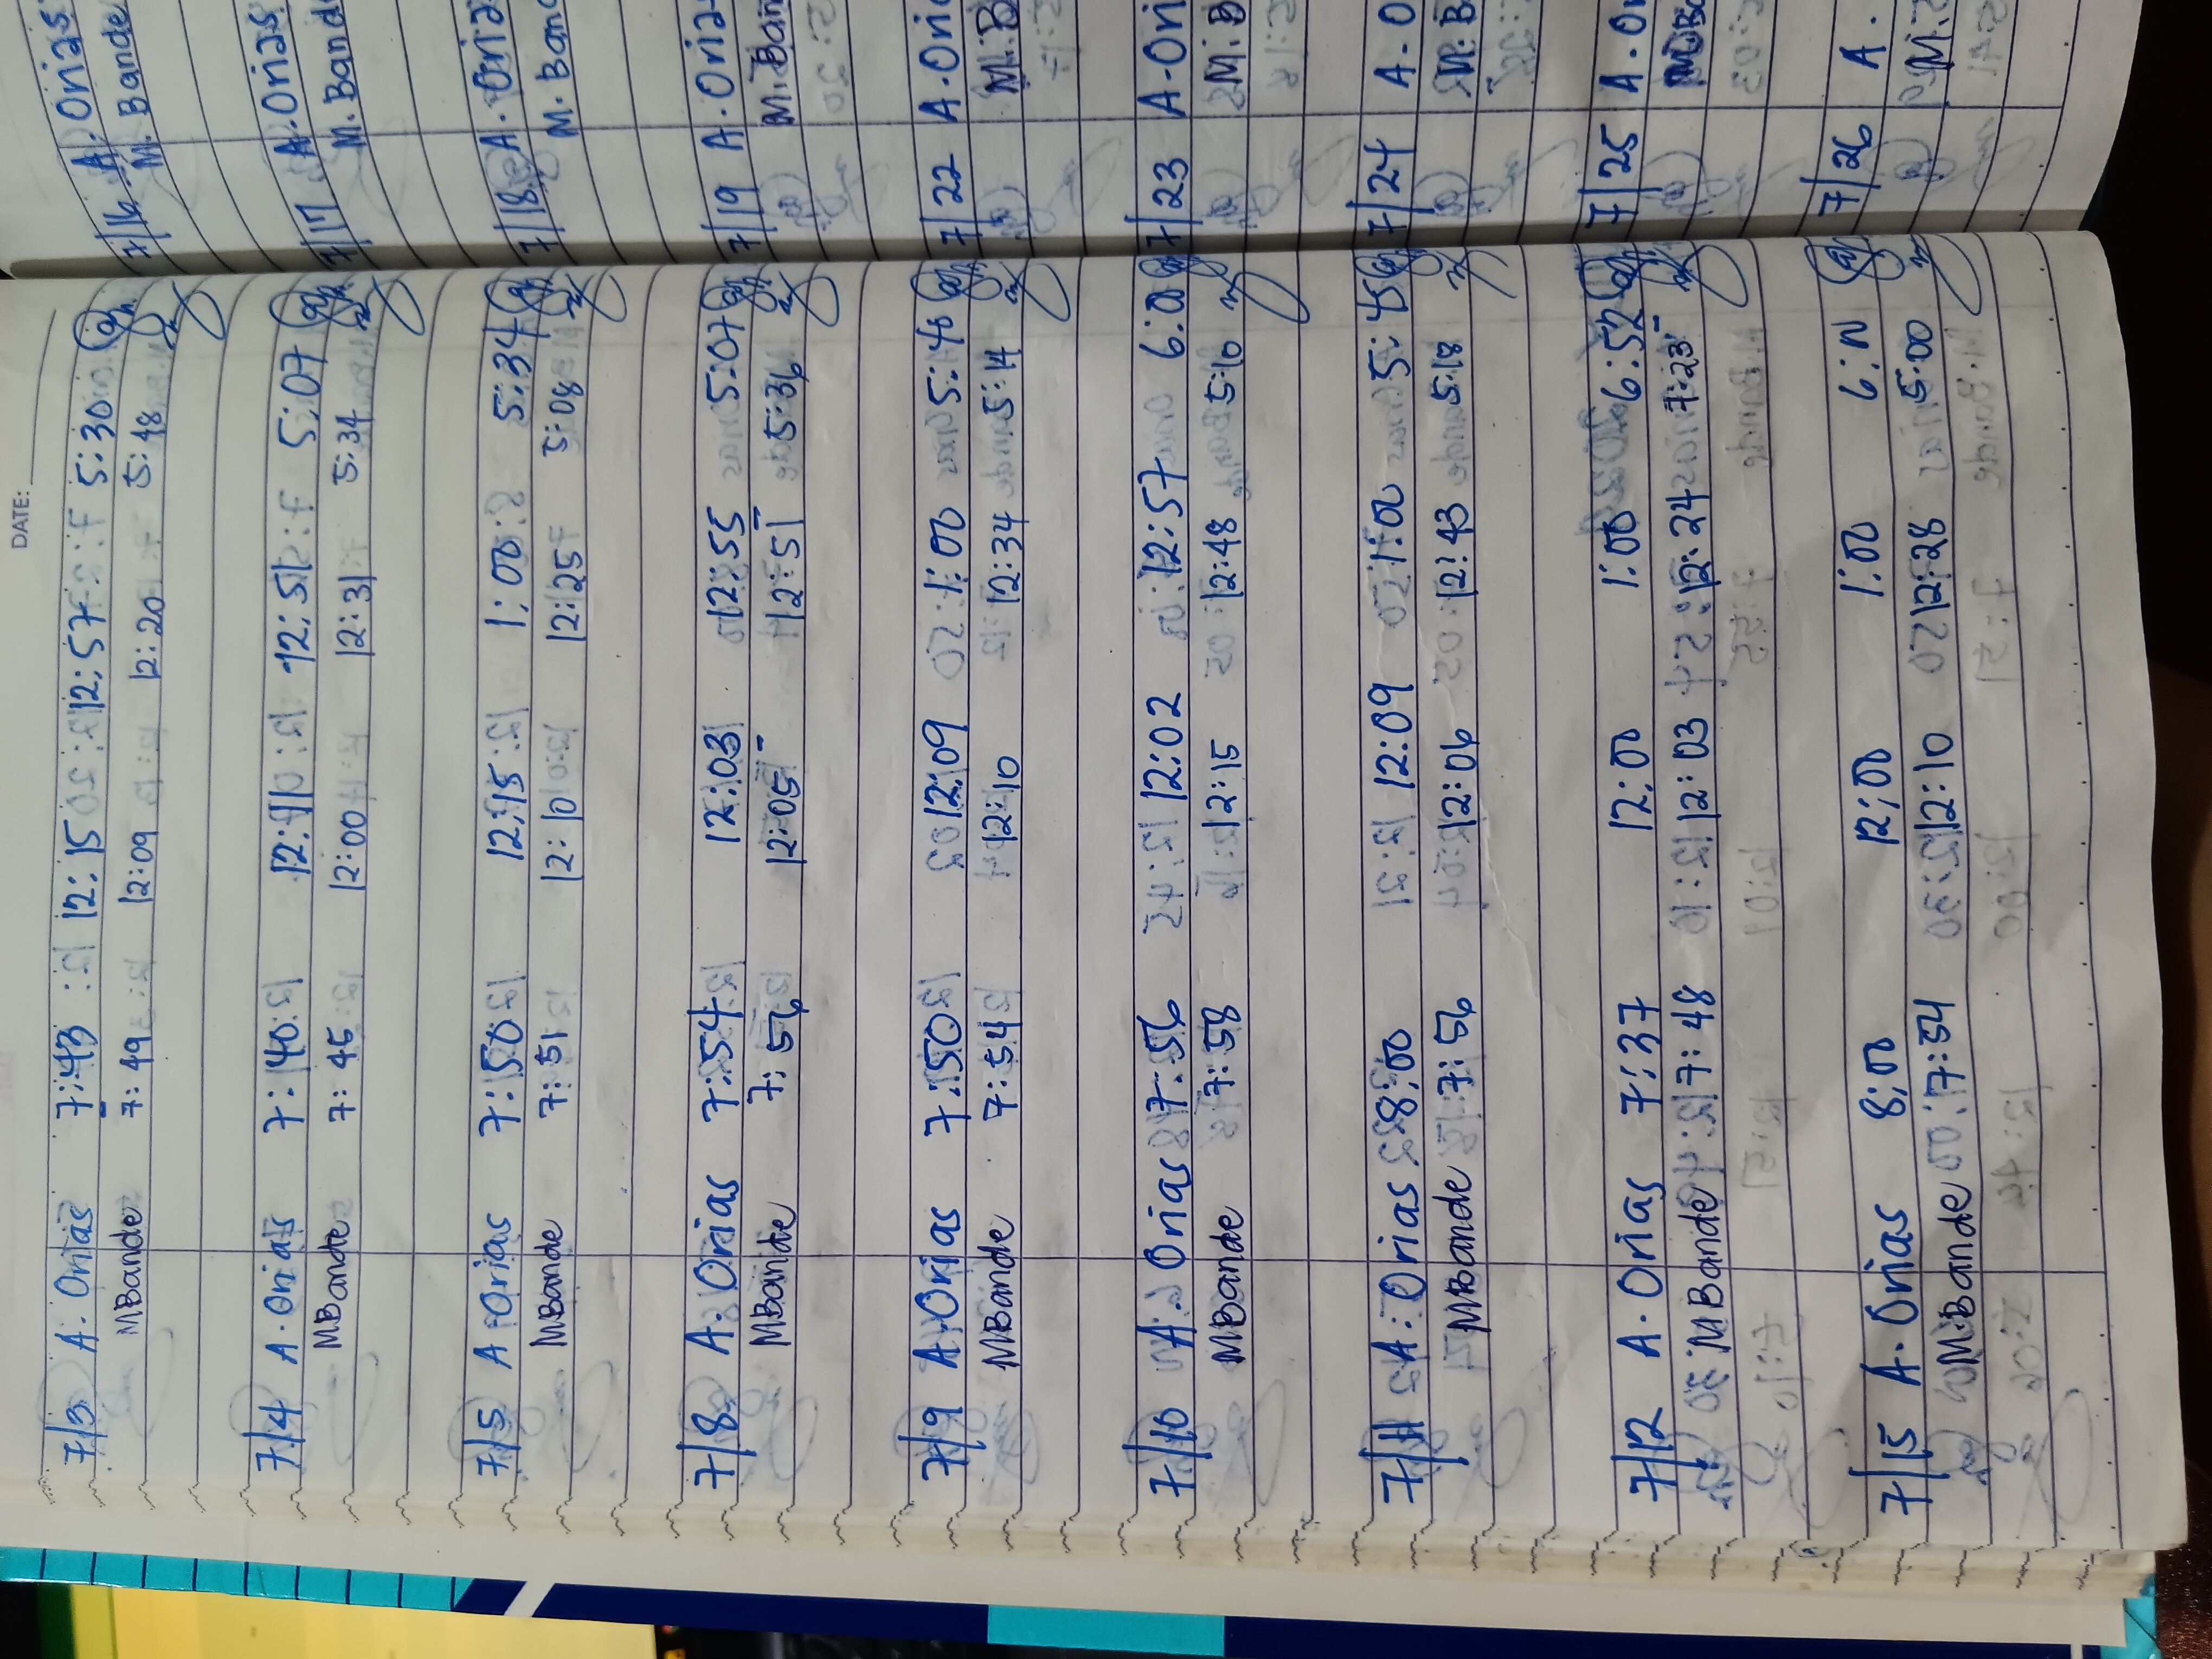 DATE:
7/3 A. Orias 7:43 12:15 12:57 5:30
MBande 7:49 12:09 12:20 5:48
7/4 A. Orias 7:40 12:11 12:51 5:07
MBande 7:45 12:00 12:31 5:34
7/5 A Orias 7:50 12:15 1:00 5:34
MBande 7:51 12:10 12:25 5:08
7/8 A. Orias 7:54 12:03 12:55 5:07
MBande 7:56 12:05 12:51 5:36
7/9 A. Orias 7:50 12:09 1:00 5:48
MBande 7:54 12:10 12:34 5:14
7/10 A. Orias 7:56 12:02 12:57 6:00
MBande 7:58 12:15 12:48 5:10
7/11 A. Orias 8:00 12:09 1:00 5:45
MBande 7:56 12:06 12:43 5:18
7/12 A. Orias 7:37 12:00 1:00 6:52
MBande 7:48 12:03 12:24 7:23
7/15 A. Orias 8:00 12:00 1:00
MBande 7:54 12:10 12:28 5:00
7/16 A. Orias
M. Bande
7/17 A. Orias
M. Bande
7/18 A. Orias
M. Band
7/19 A. Orias
M. Ban
7/22 A. Oria
M. B
7/23 A. Ori
M. B
7/24 A. O
M. B
7/25 A. Or
M. Ba
7/26 A.
M. B